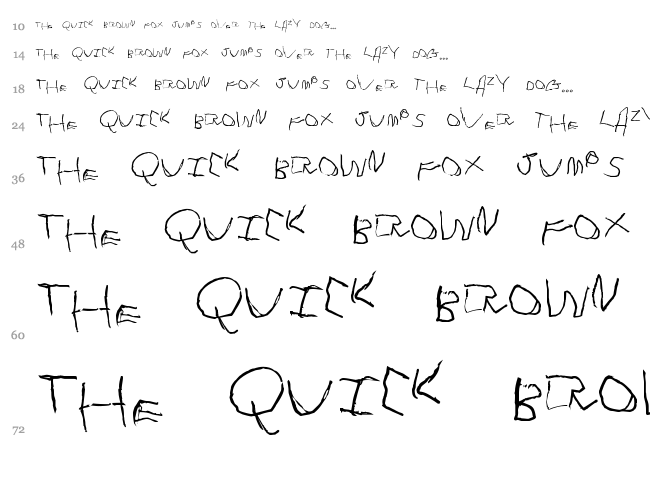 10 THE QUICK BROWN FOX JUMPS OVER THE LAZY DOG...
14 THE QUICK BROWN FOX JUMPS OVER THE LAZY DOG...
18 THE QUICK BROWN FOX JUMPS OVER THE LAZY DOG...
24 THE QUICK BROWN FOX JUMPS OVER THE LAZY
36 THE QUICK BROWN FOX JUMPS
48 THE QUICK BROWN FOX
60 THE QUICK BROWN
72 THE QUICK BROW